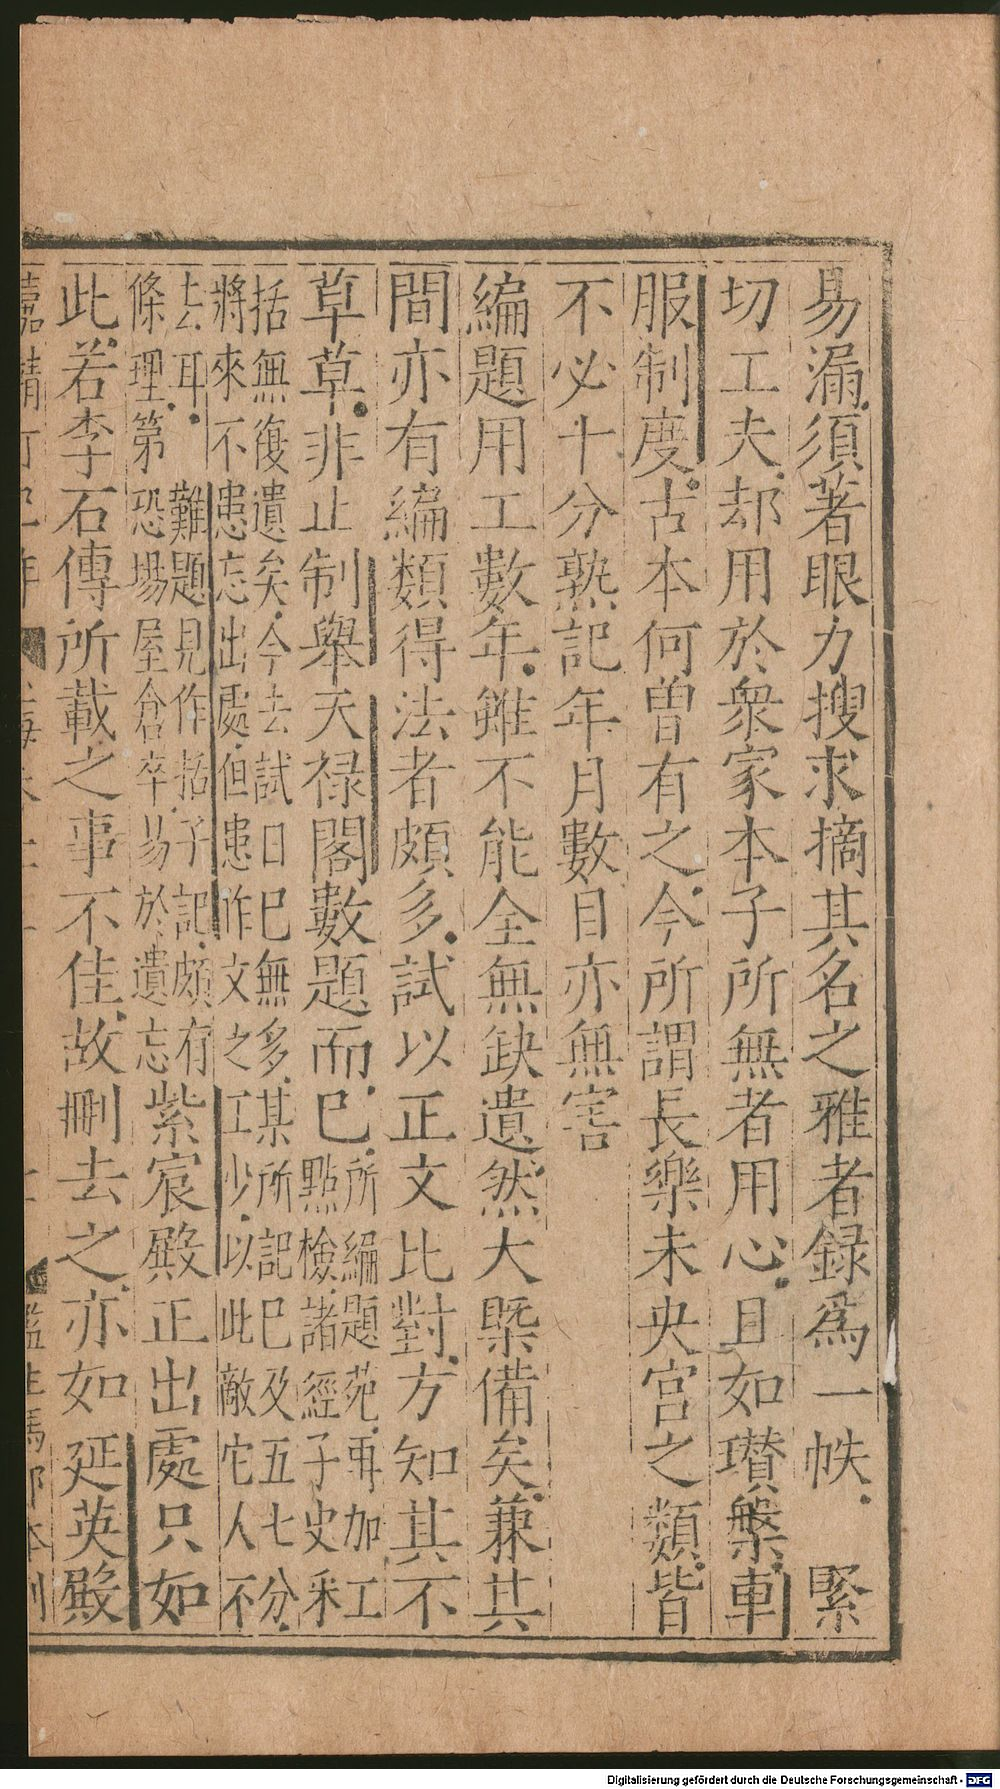 易漏須著眼力搜求摘其名之雅者録爲一帙　緊
切工夫却用於衆家本子所無者用心且如瓚槃車
服制度古本何曽有之今所謂長樂未央宮之類皆
不必十分熟記年月數目亦無害
編題用工數年雖不能全無缺遺然大槩備矣兼其
間亦有編類得法者頗多試以正文比對方知其不
草草非止制舉天禄閣數題而已所編題苑再加工
點檢諸經子史釆
括無復遺矣今去試日巳無多某所記巳及五七分
將來不患忘出處但患作文之工少以此敵它人不
去耳難題見作括子記頗有
條理第恐場屋倉卒易於遺忘紫宸殿正出處只如
此若李石傳所載之事不佳故刪去之亦如延英殿
Digitalisierung gefördert durch die Deutsche Forschungsgemeinschaft - DFG